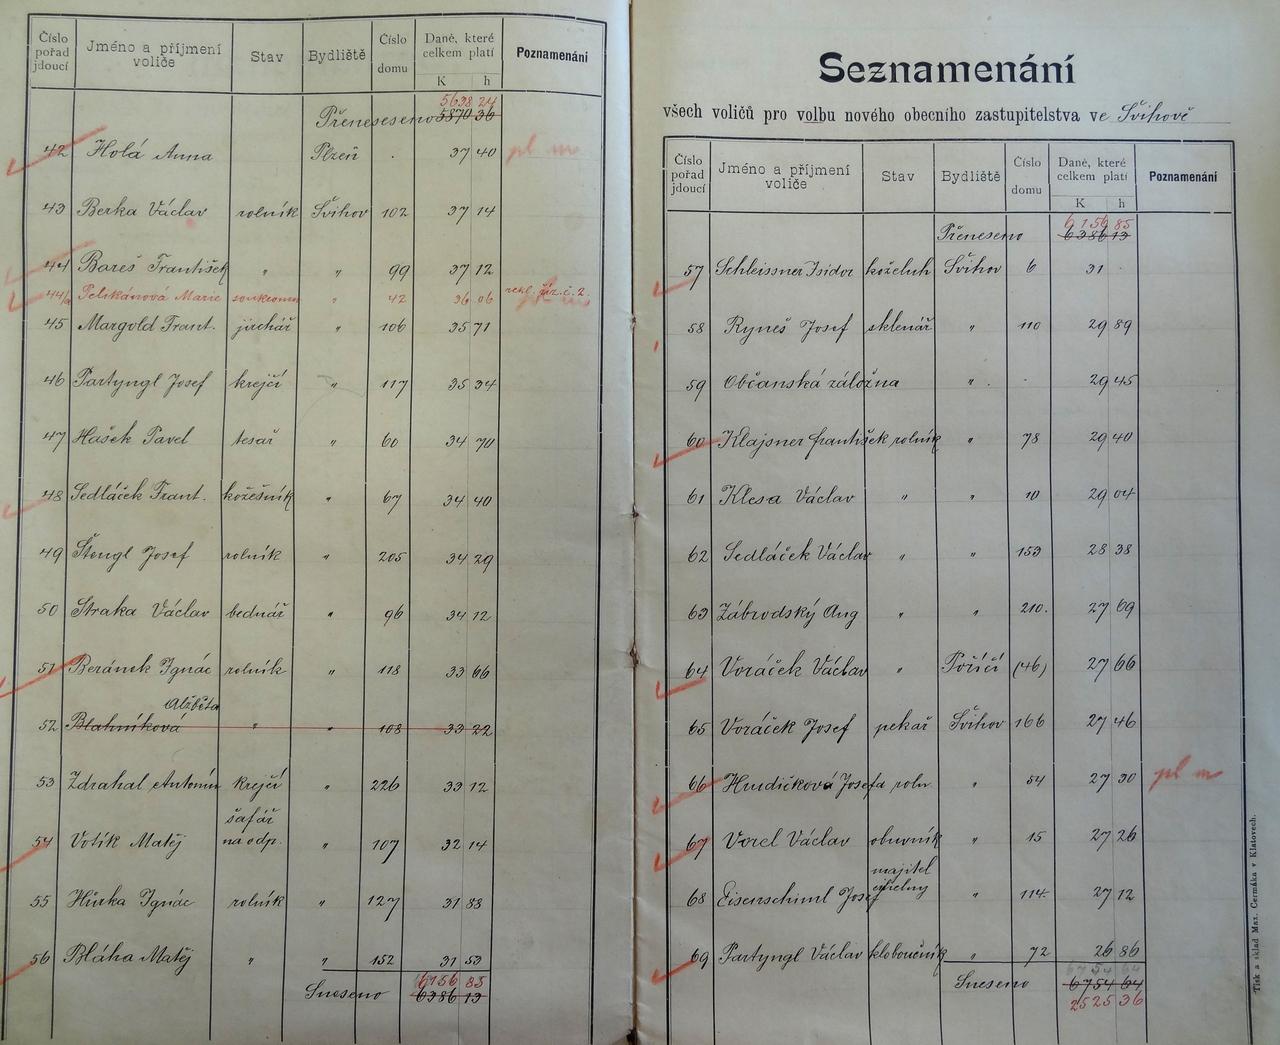 Číslo pořad jdoucí | Jméno a příjmení voliče | Stav | Bydliště | Číslo domu | Daně, které celkem platí K h | Poznamenání
5638 24
Přeneseno 5870 36
42 Holá Anna Plzeň . 37 40 pl m
43 Berka Václav rolník Švihov 102 37 14
44 Bareš František " " 99 37 12
44/a Pelikánová Marie soukromn " 42 36 06 rekl. říz. č. 2.
45 Margold Frant. jirchář " 106 35 71
46 Partyngl Josef krejčí " 117 35 34
47 Hašek Pavel tesař " 60 34 70
48 Sedláček Frant. kožešník " 67 34 40
49 Štengl Josef rolník " 205 34 29
50 Straka Václav bednář " 96 34 12
51 Beránek Ignác rolník " 118 33 66
Alžběta
52 Blahníková " " 108 33 22
53 Zdrahal Antonín krejčí " 226 33 12
šafář
54 Votík Matěj na odp. " 107 32 14
55 Hůrka Ignác rolník " 127 31 88
56 Bláha Matěj " " 152 31 53
6156 85
Sneseno 6386 13
Seznamenání
všech voličů pro volbu nového obecního zastupitelstva ve Švihově
Číslo pořad jdoucí | Jméno a příjmení voliče | Stav | Bydliště | Číslo domu | Daně, které celkem platí K h | Poznamenání
6156 85
Přeneseno 6386 13
57 Schleissner Isidor koželuh Švihov 6 31 .
58 Ryneš Josef sklenář " 110 29 89
59 Občanská záložna " . . 29 45
60 Klajsner František rolník " 78 29 40
61 Klesa Václav " " 10 29 04
62 Sedláček Václav " " 153 28 38
63 Zábrodský Aug " " 210. 27 69
64 Voráček Václav " Poříčí (46) 27 66
65 Voráček Josef pekař Švihov 166 27 46
66 Hudičková Josefa roln. 54 27 30 pl m
67 Vorel Václav obuvník " 15 27 26
majitel
68 Eisenschiml Josef " 114. 27 12
69 Partyngl Václav kloboučník " 72 26 86
6754 64
Sneseno 6754 64
2525 36
Tisk a sklad Max. Čermáka v Klatovech.